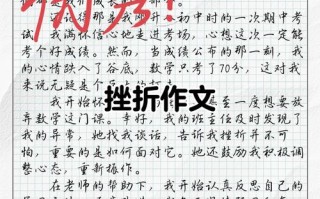 还记得那是我刚升入初中时的一次期中考
试。我满怀信心地走进考场，心想这次一定能
考个好成绩。然而，当成绩公布的那一刻，我
的心情跌入了谷底，数学只考了70分，这对我
来说无疑是
我开始怀 至一度想要放
挫折作文
弃数学这门课。幸好，我的班主任及时发现了
我的异常，她找我谈话，告诉我挫折并不可
怕，重要的是如何面对它。她还鼓励我积极调
整心态，重新振作。
在老师的帮助下，我开始认真反思自己的